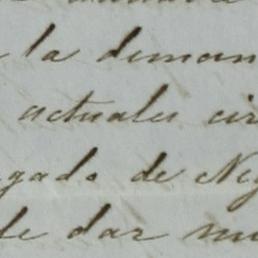 la deman
actuales cir
gado de Neg
de dar mu